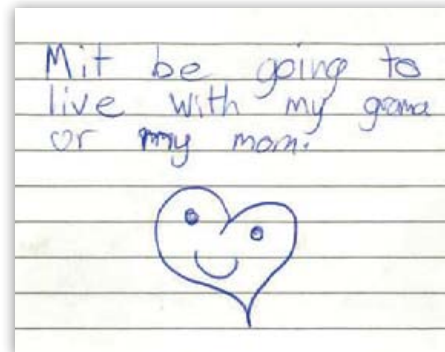 Mit be going to
live with my grama
or my mom.